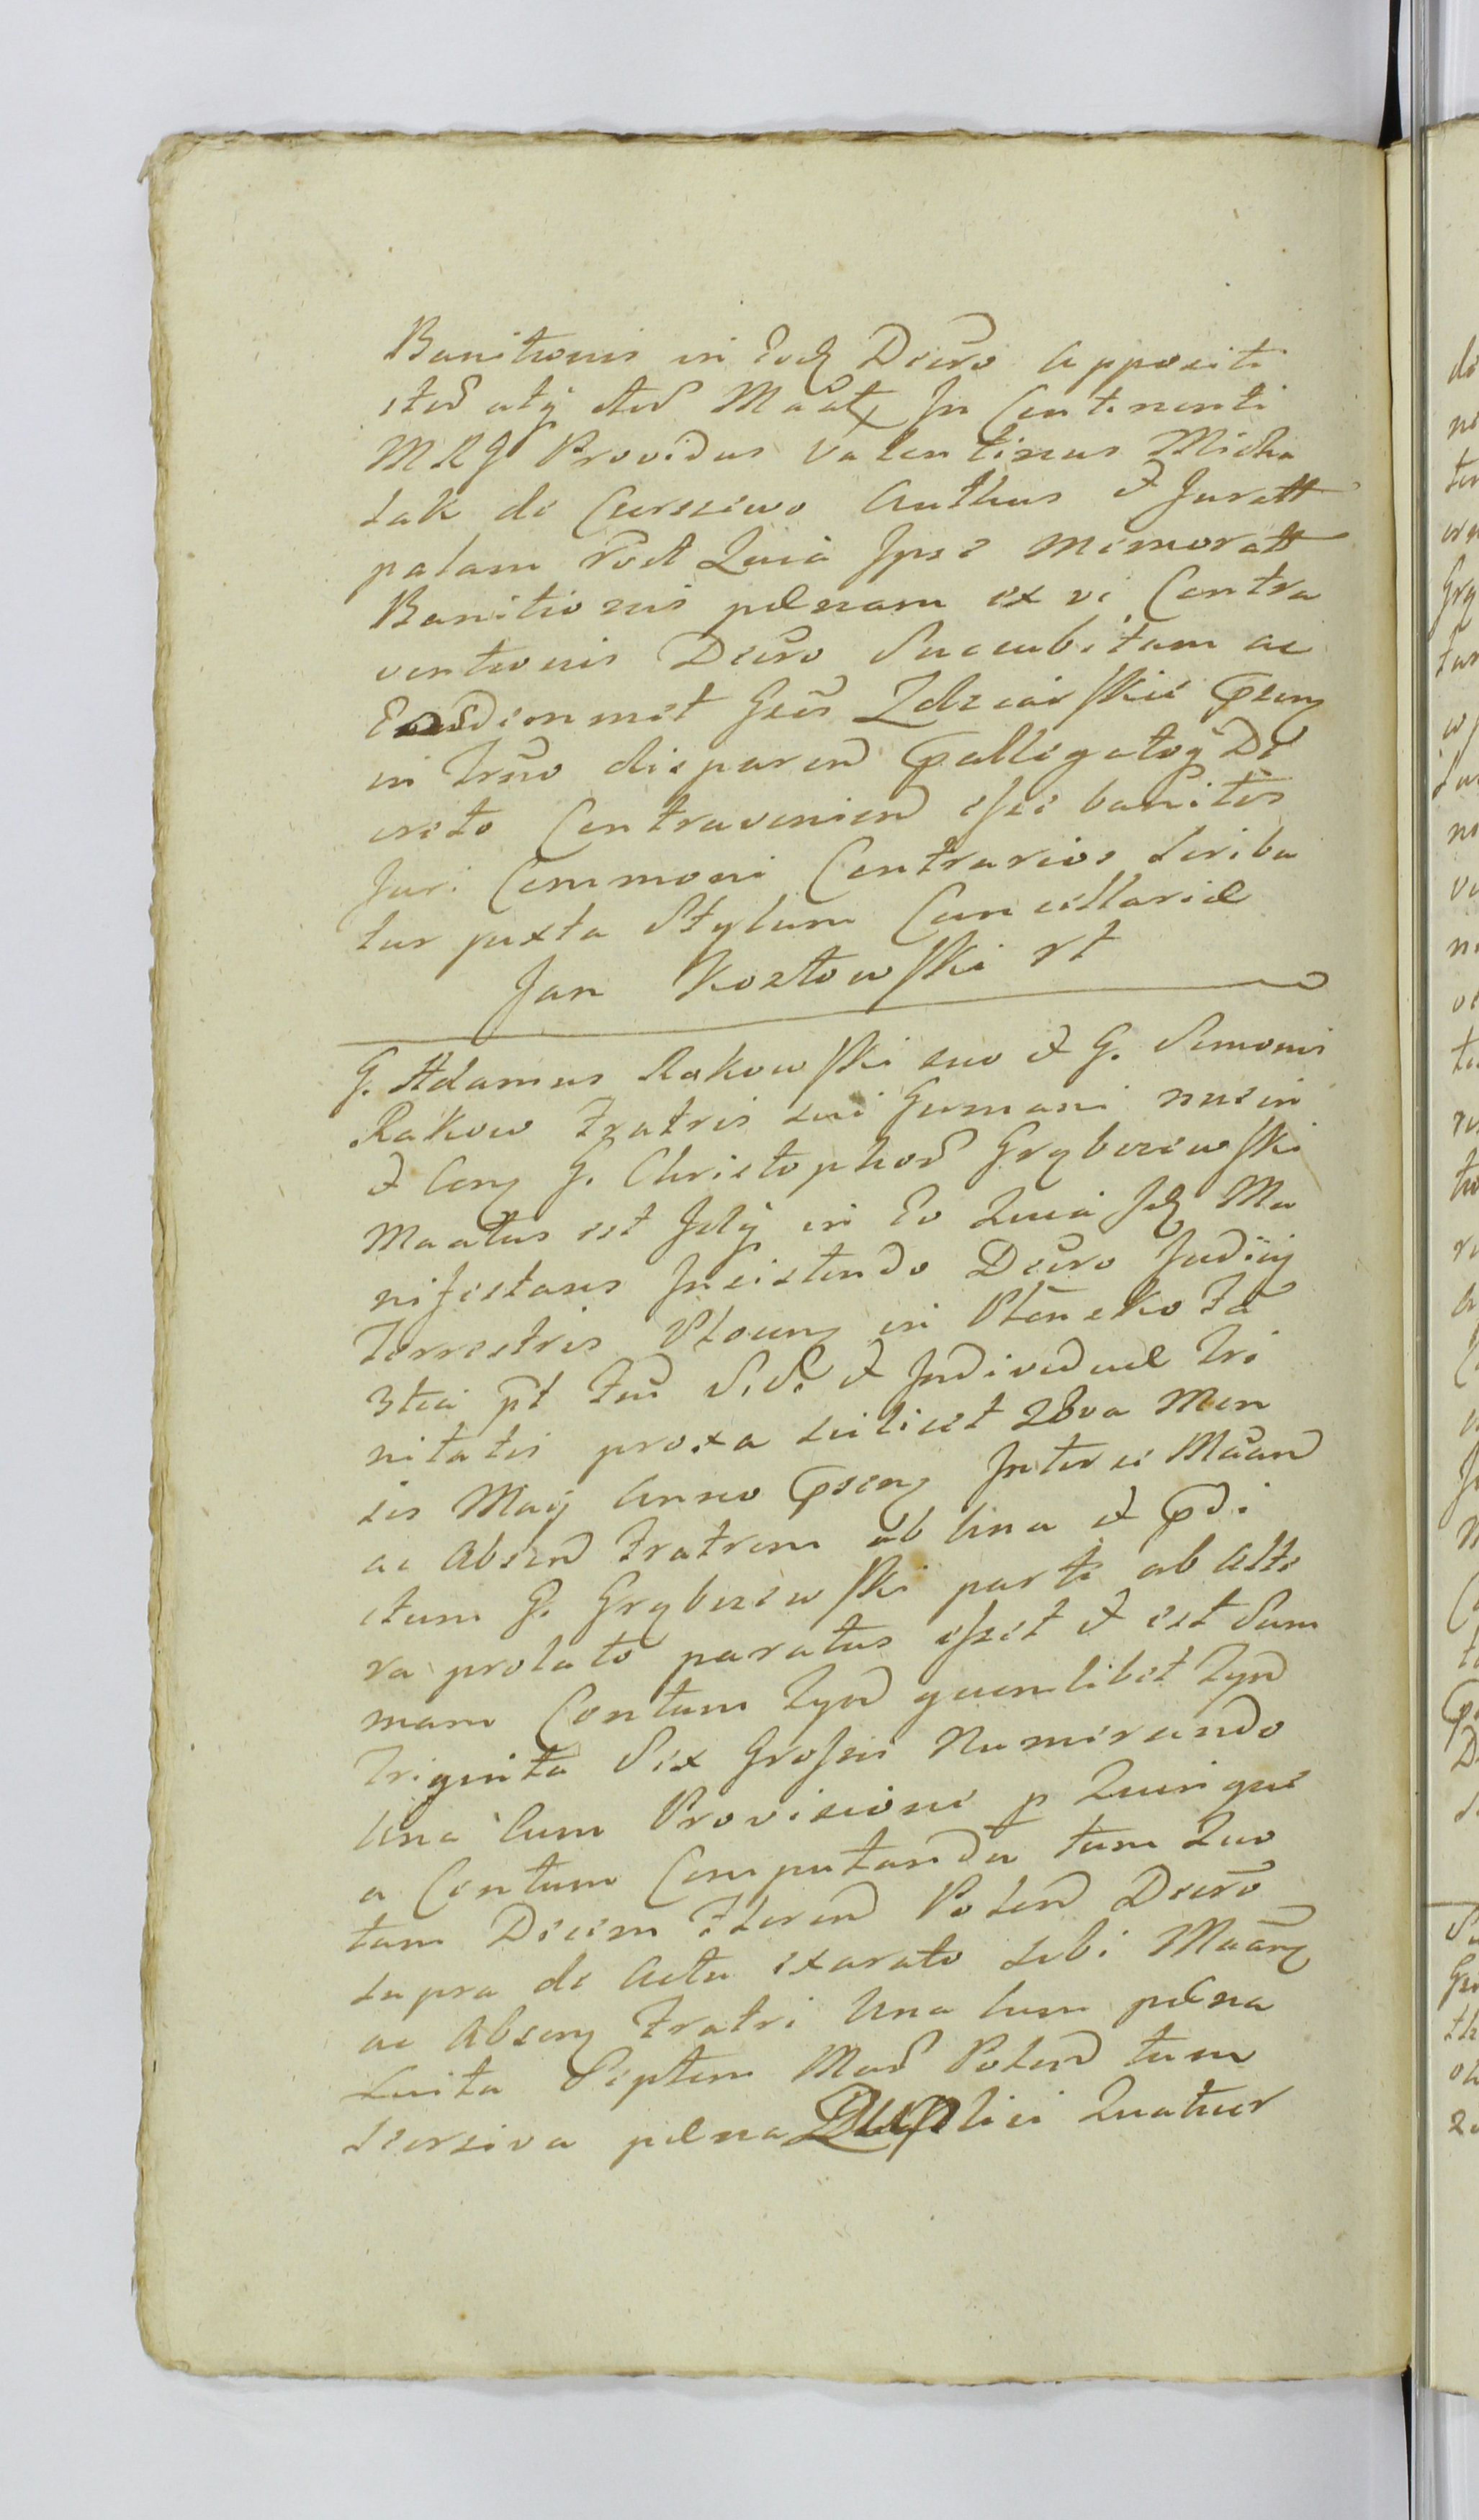 Banitionis in Eodz Decro Appositi
sted atq sted Maatz In Continenti
MRG Providus Valentinus Micha
lak de Curssewo Authus et Juratt
palam Rodt Quia Ipse memoratt
Banitionis pœnam ex vi Contra
ventionis Decro Succubitam ac
Eosdemmet Gsos Zdziarskie Psenz
in Trno disparend Palligatoq De
creto Contraveniend esse banitos
Juri Communi Contrarios Scriba
tur juxta Stylum Cancellariæ
Jan Kozłowski rt
G. Adamus Rakowski suo et G. Simonis
Rakow Fratris sui Germani noein
et Conz G. Christophod Grybczewski
Maatus est Idq in Eo Quia Idz Ma
nifestans Insistendo Decro Judiciq
Terrestris Plocenz in Ptonsko Fa
3tia pt Fm S.S. et Individuæ Tri
nitatis proxa scilicet 28va Men
sis Maij Anno Psenz Inter se Maand
ac Absend Fratrem ab Una et Pdi
ctum G. Grybczewski parte ab Alte
ra prolato paratus esset et est Sum
mam Centum Tynd quemlibet Tynd
Triginta Sex Grossis Numerando
Una Cum Provisione p Quinque
a Centum Computanda tum Quo
tam Decem Florend Polend Decro
supra de Actu exarato Sibi Maanz
ac Absenz Fratri Una Cum pœna
Luita Septem Mad Polend tum
Secersiva pœna Duplici Quatuor